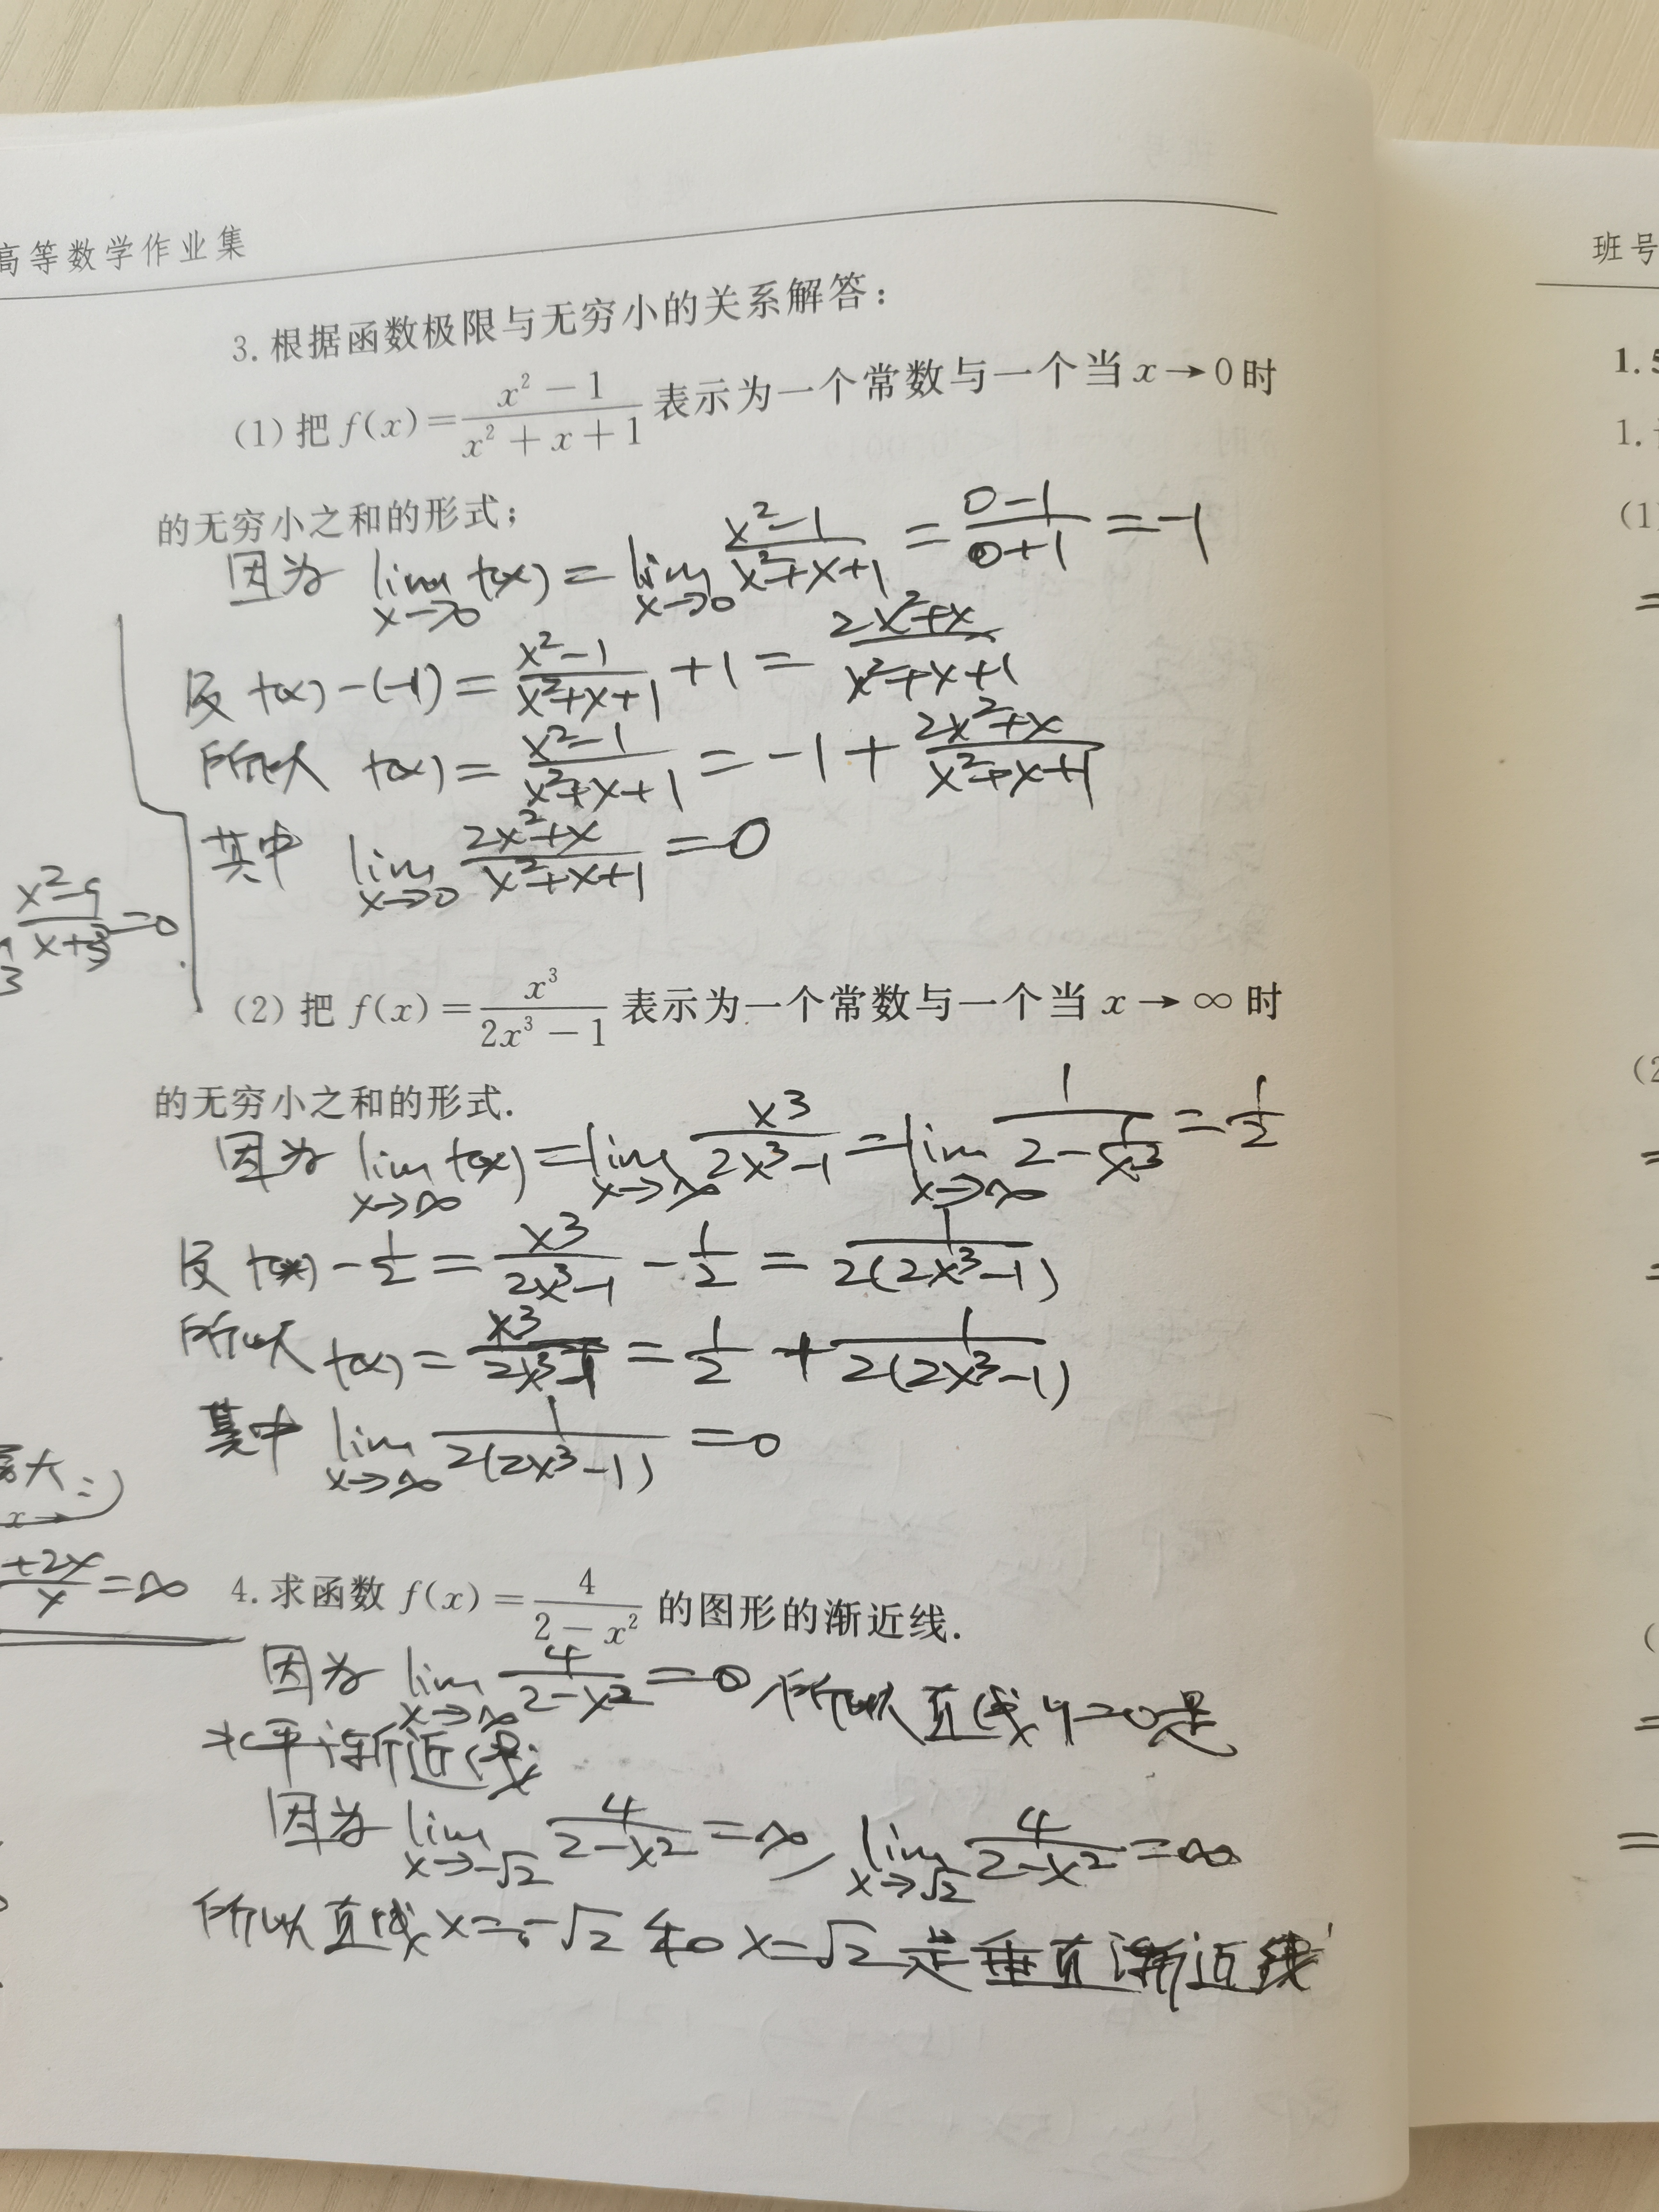 高等数学作业集
3.根据函数极限与无穷小的关系解答：
(1)把 f(x)=\frac{x^2-1}{x^2+x+1} 表示为一个常数与一个当 x→0 时
的无穷小之和的形式；
因为 \lim_{x→0} f(x)=\lim_{x→0} \frac{x^2-1}{x^2+x+1}=\frac{0-1}{0+1}=-1
及 f(x)-(-1)=\frac{x^2-1}{x^2+x+1}+1=\frac{2x^2+x}{x^2+x+1}
所以 f(x)=\frac{x^2-1}{x^2+x+1}=-1+\frac{2x^2+x}{x^2+x+1}
其中 \lim_{x→0} \frac{2x^2+x}{x^2+x+1}=0
\frac{x^2-9}{x+3}=0
3
(2)把 f(x)=\frac{x^3}{2x^3-1} 表示为一个常数与一个当 x→∞ 时
的无穷小之和的形式.
因为 \lim_{x→∞} f(x)=\lim_{x→∞} \frac{x^3}{2x^3-1}=\lim_{x→∞} \frac{1}{2-\frac{1}{x^3}}=\frac{1}{2}
及 f(x)-\frac{1}{2}=\frac{x^3}{2x^3-1}-\frac{1}{2}=\frac{1}{2(2x^3-1)}
所以 f(x)=\frac{x^3}{2x^3-1}=\frac{1}{2}+\frac{1}{2(2x^3-1)}
其中 \lim_{x→∞} \frac{1}{2(2x^3-1)}=0
大
x→
\frac{+2x}{x}=∞
4.求函数 f(x)=\frac{4}{2-x^2} 的图形的渐近线.
因为 \lim_{x→∞} \frac{4}{2-x^2}=0 所以直线 y=0是
水平渐近线
因为 \lim_{x→-\sqrt{2}} \frac{4}{2-x^2}=∞, \lim_{x→\sqrt{2}} \frac{4}{2-x^2}=∞
所以直线 x=-\sqrt{2} 和 x=\sqrt{2} 是垂直渐近线
班号
1.5
1.
(1
=
(2
=
=
(
=
=